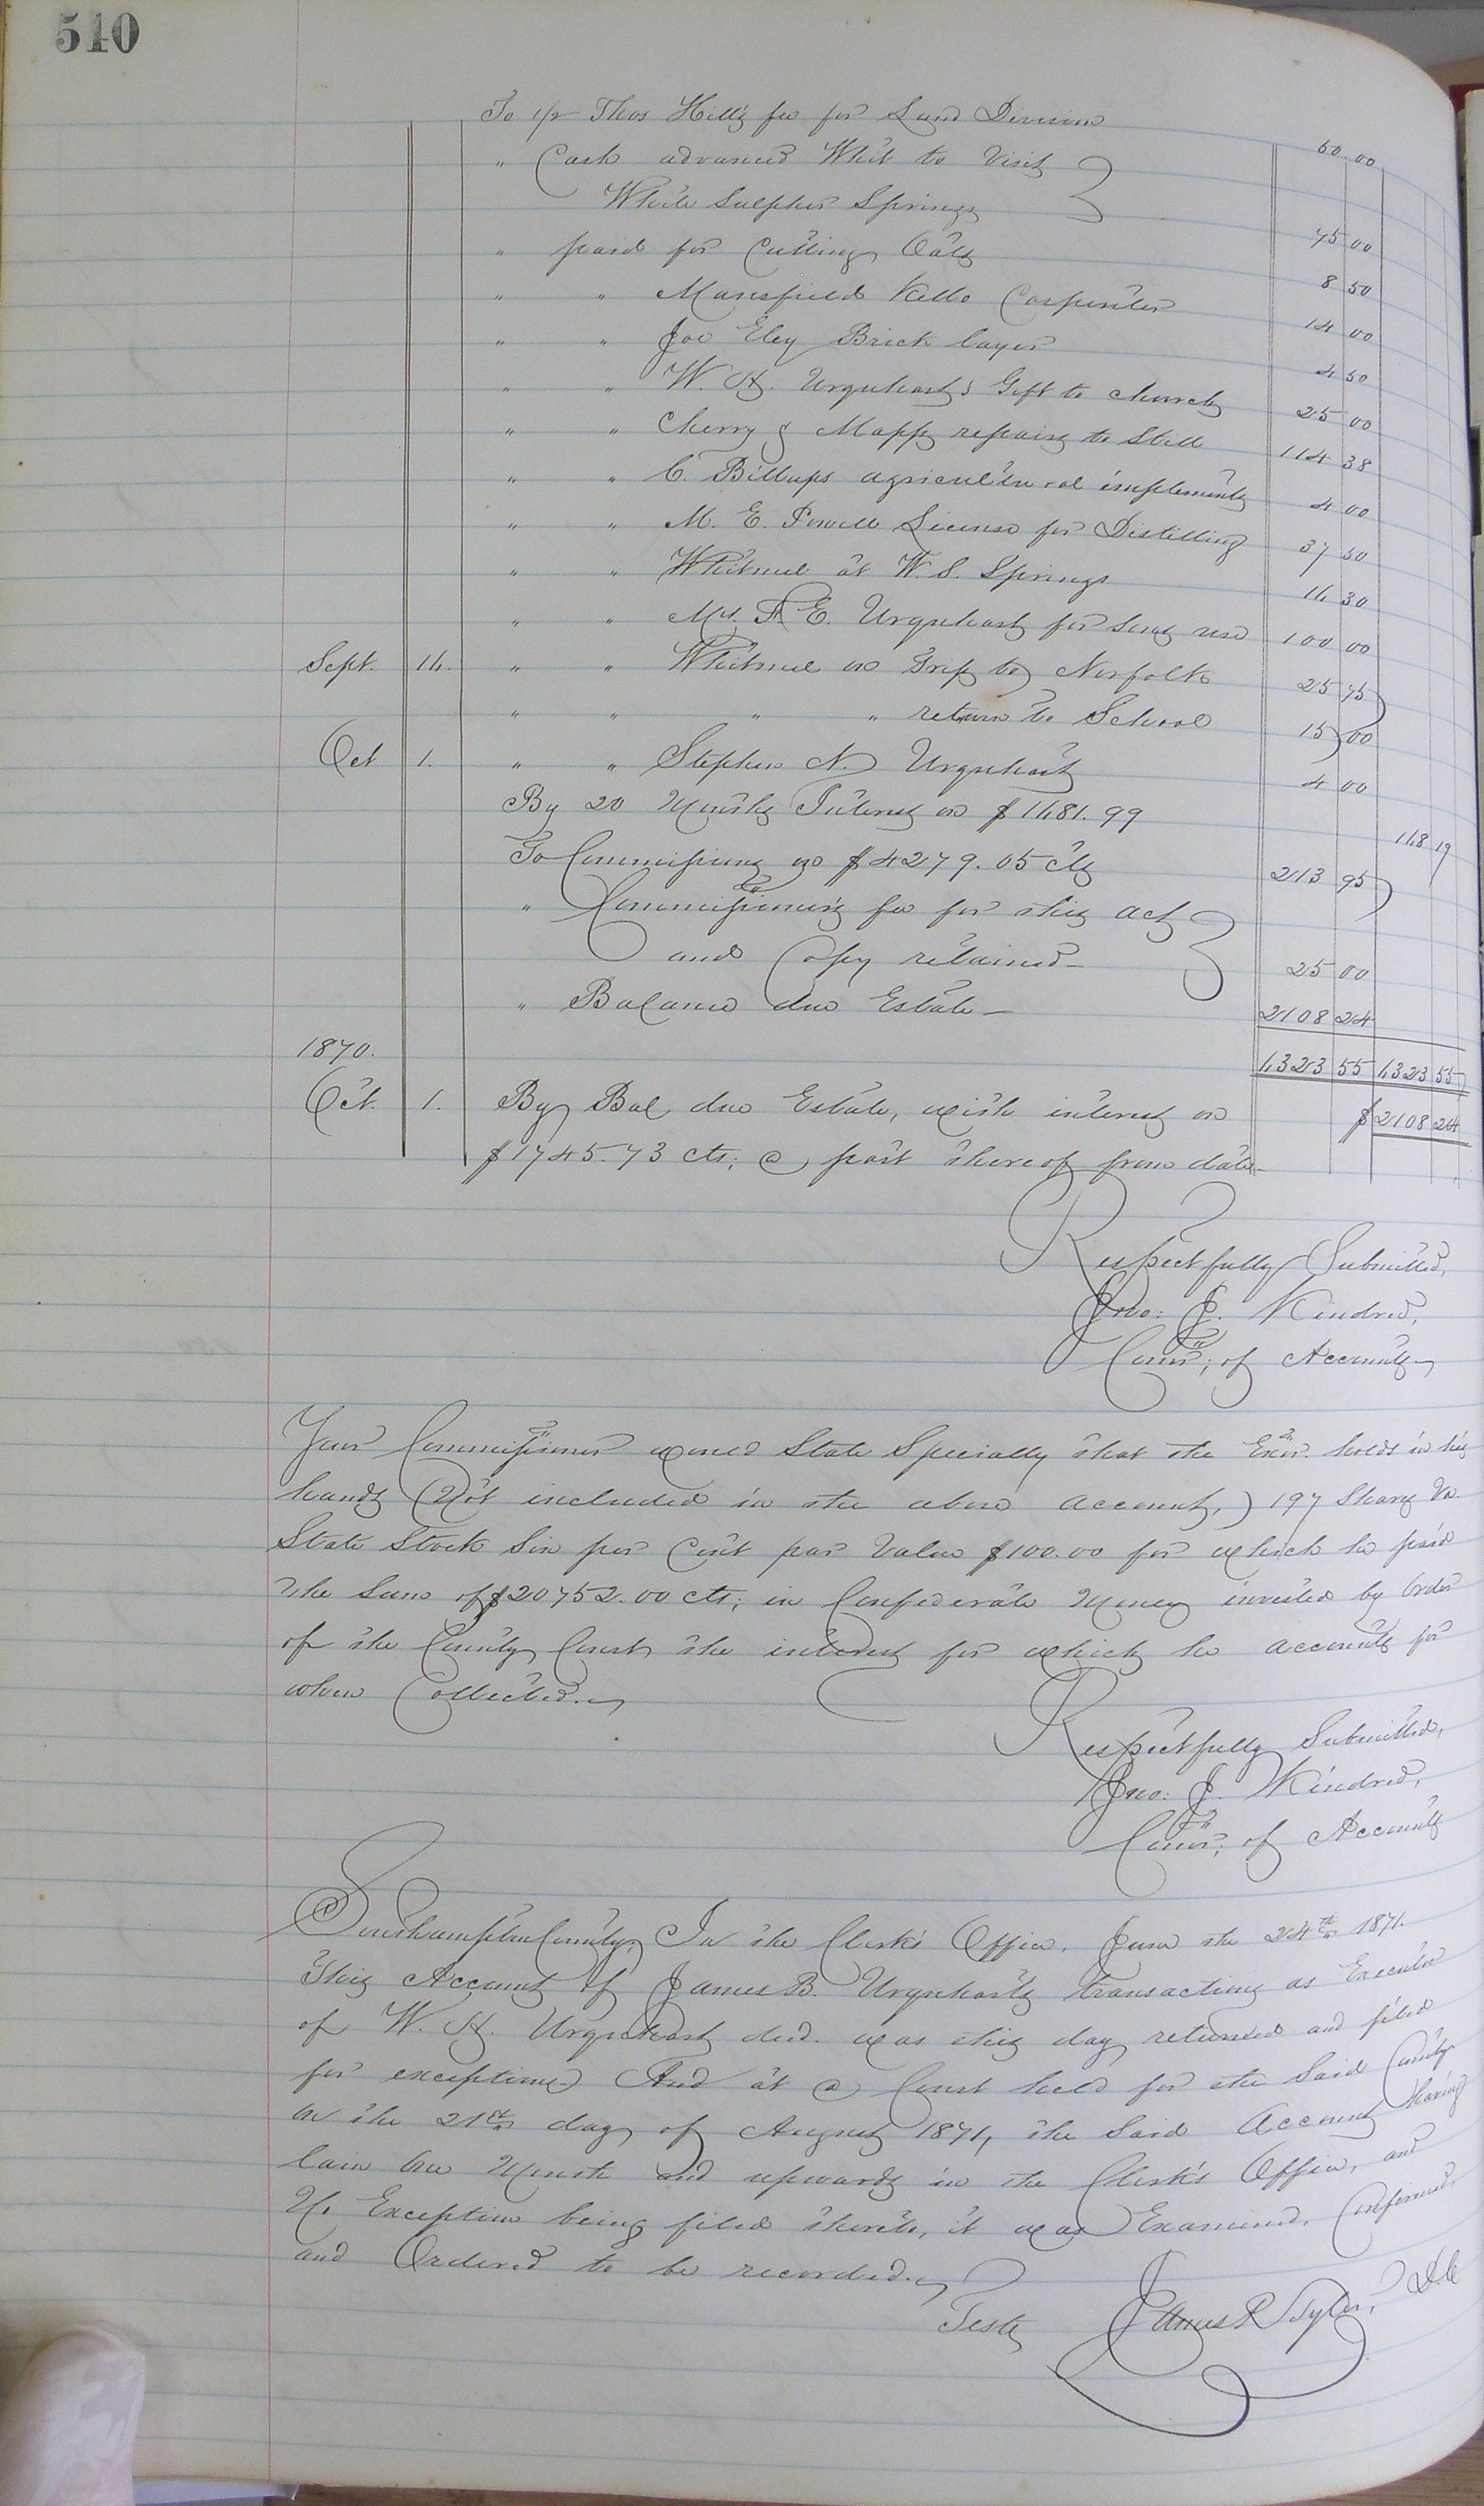 510
To 1/2 Thos Hill's fee for Land Division 50 00
" Cash advanced Whit to Visit
White Sulphur Springs 75 00
" paid for Cutting Oats 8 50
" " Mansfield Kello Carpenter 14 00
" " Joe Eley Brick layer 4 50
" " W. H. Urquhart's Gift to church 25 00
" " Cherry & Mapp repairs to Still 114 38
" " C. Billups agricultural implements 4 00
" " M. E. Powell License for Distilling 37 50
" " Whitmel at W. S. Springs 30
" " F. E. Urquhart for use 100 00
Sept. " " Whitmel on Trip to Norfolk 25 75
" " " " return to School 15 00
Oct 1. " " Stephen N. Urquhart 4 00
By 20 Months Interest on $ 81.99 19
To Commissions on $4279.05 cts 213 95
" Commissioner's fee for this act
and Copy retained 25 00
" Balance due Estate 2108 24
1870. 323 55 323 55
Oct. 1. By Bal due Estate, with interest on $2108 24
$1745.73 cts; a part thereof from date
Respectfully Submitted,
Jno: J. Kindred,
Comr; of Accounts
Your Commissioner would State Specially that the Exor. holds in his
hands (Not included in the above account,) 197 Shares Va.
State Stock Six per Cent par Value $100.00 for which he paid
the Sum of $20752.00 cts; in Confederate Money invested by Order
of the County Court the interest for which he accounts for
when Collected.
Respectfully Submitted,
Jno: J. Kindred,
Comr; of Accounts
Southampton County, In the Clerk's Office, June the 24th 1871.
This Account of James B. Urquhart's transactions as Executor
of W. H. Urquhart decd. was this day returned and filed
for exceptions And at a Court held for the Said County
on the 21st day of August 1871, the Said Account having
lain One Month and upwards in the Clerk's Office, and
No Exception being filed thereto, it was Examined, Confirmed,
and Ordered to be recorded.
Teste James R Tyler, D.C